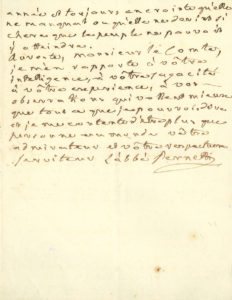 année et toujours en croiste qu'elle
ne manquât ou qu'elle ne devint si
chere que le peuple ne pouvoit
y atteindre.
au reste, monsieur le Comte,
je m'en rapporte à vôtre
intelligence, à vôtre sagacité
à vôtre experience, à vos
observations qui
que tout ce que je pourrois dire
et je me contente d'etre plus que
personne au monde vôtre
admirateur et vôtre respectueux
serviteur L'abbé Pernetti